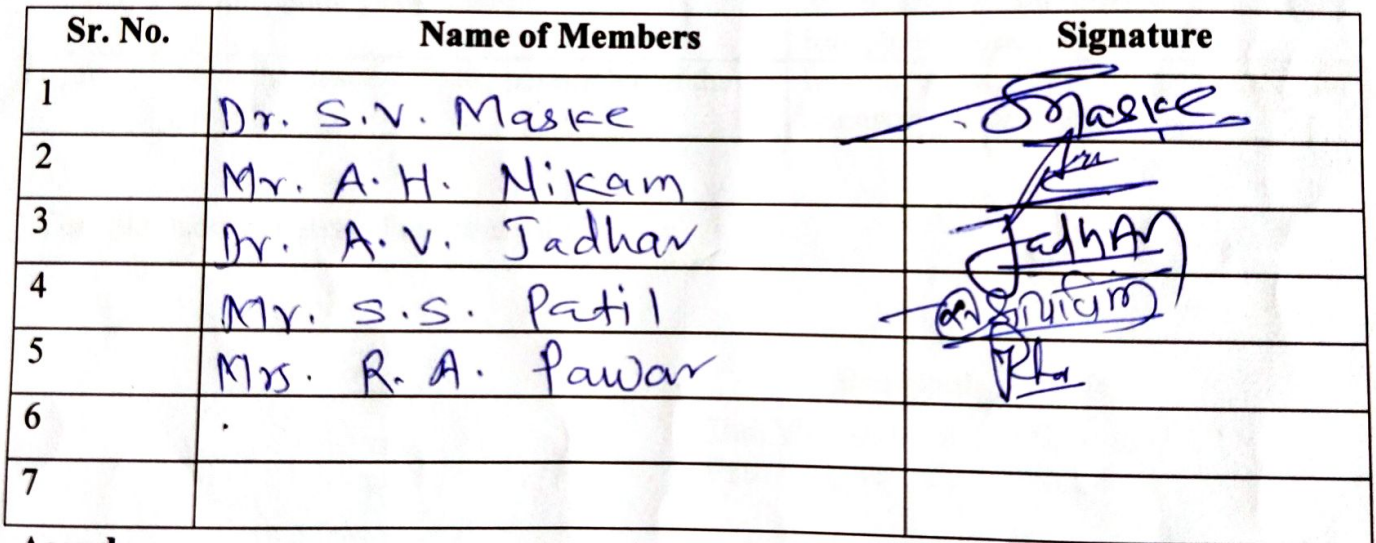 Sr. No. Name of Members Signature
1 Dr. S.V. Maske Smaske
2 Mr. A.H. Nikam
3 Dr. A.V. Jadhav Jadhav
4 Mr. S.S. Patil
5 Mrs. R.A. Pawar
6
7